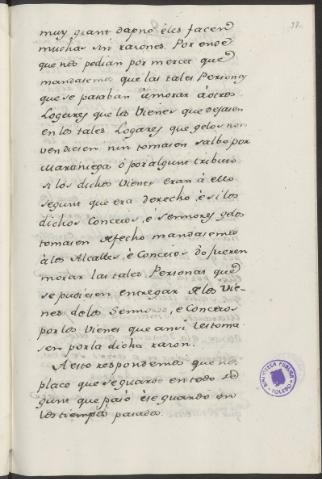 37.
muy grant dapno e les facen
muchas sin razones. Por ende
que nos pedian por merced que
mandasemos que las tales Personas
que se pasaban a morar a otros
Logares que los Vienes que dejasen
en los tales Logares que gelos non
vendiesen nin tomasen salbo por
Marfaniega o por algunt tributo
si los dichos Vienes eran a ello
segunt que era derecho, e si los
dichos Concejos, e Sennores gelos
tomasen de fecho mandasemos
a los Alcalles, e Concejos do fueren
morar las tales Personas que
se pudiesen entregar de los Vie-
nes de los Sennores, e Concejos
por los Vienes que ansi les toma-
sen por la dicha razon.
A esto respondemos que nos
place que se guarde en todo se-
gunt que pasó e se guardo en
los tiempos pasados.
BIBLIOTECA PUBLICA
TOLEDO